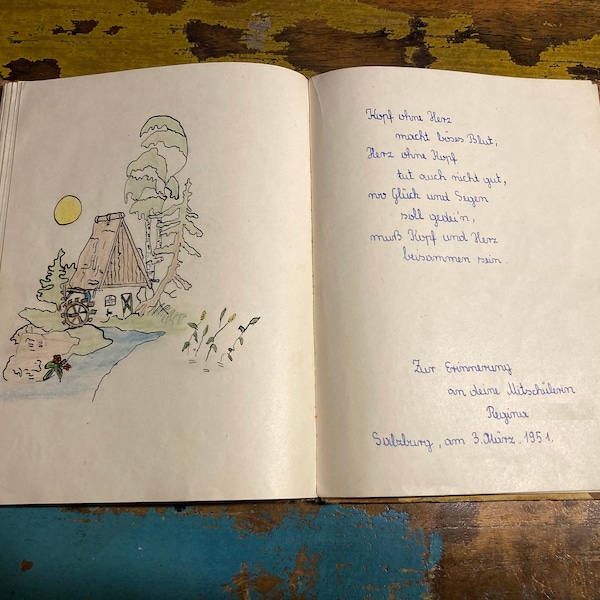 Kopf ohne Herz
macht böses Blut,
Herz ohne Kopf
tut auch nicht gut,
wo Glück und Segen
soll gedei'n,
muß Kopf und Herz
beisammen sein.
Zur Erinnerung
an deine Mitschülerin
Regina
Salzburg, am 3. März. 1951.